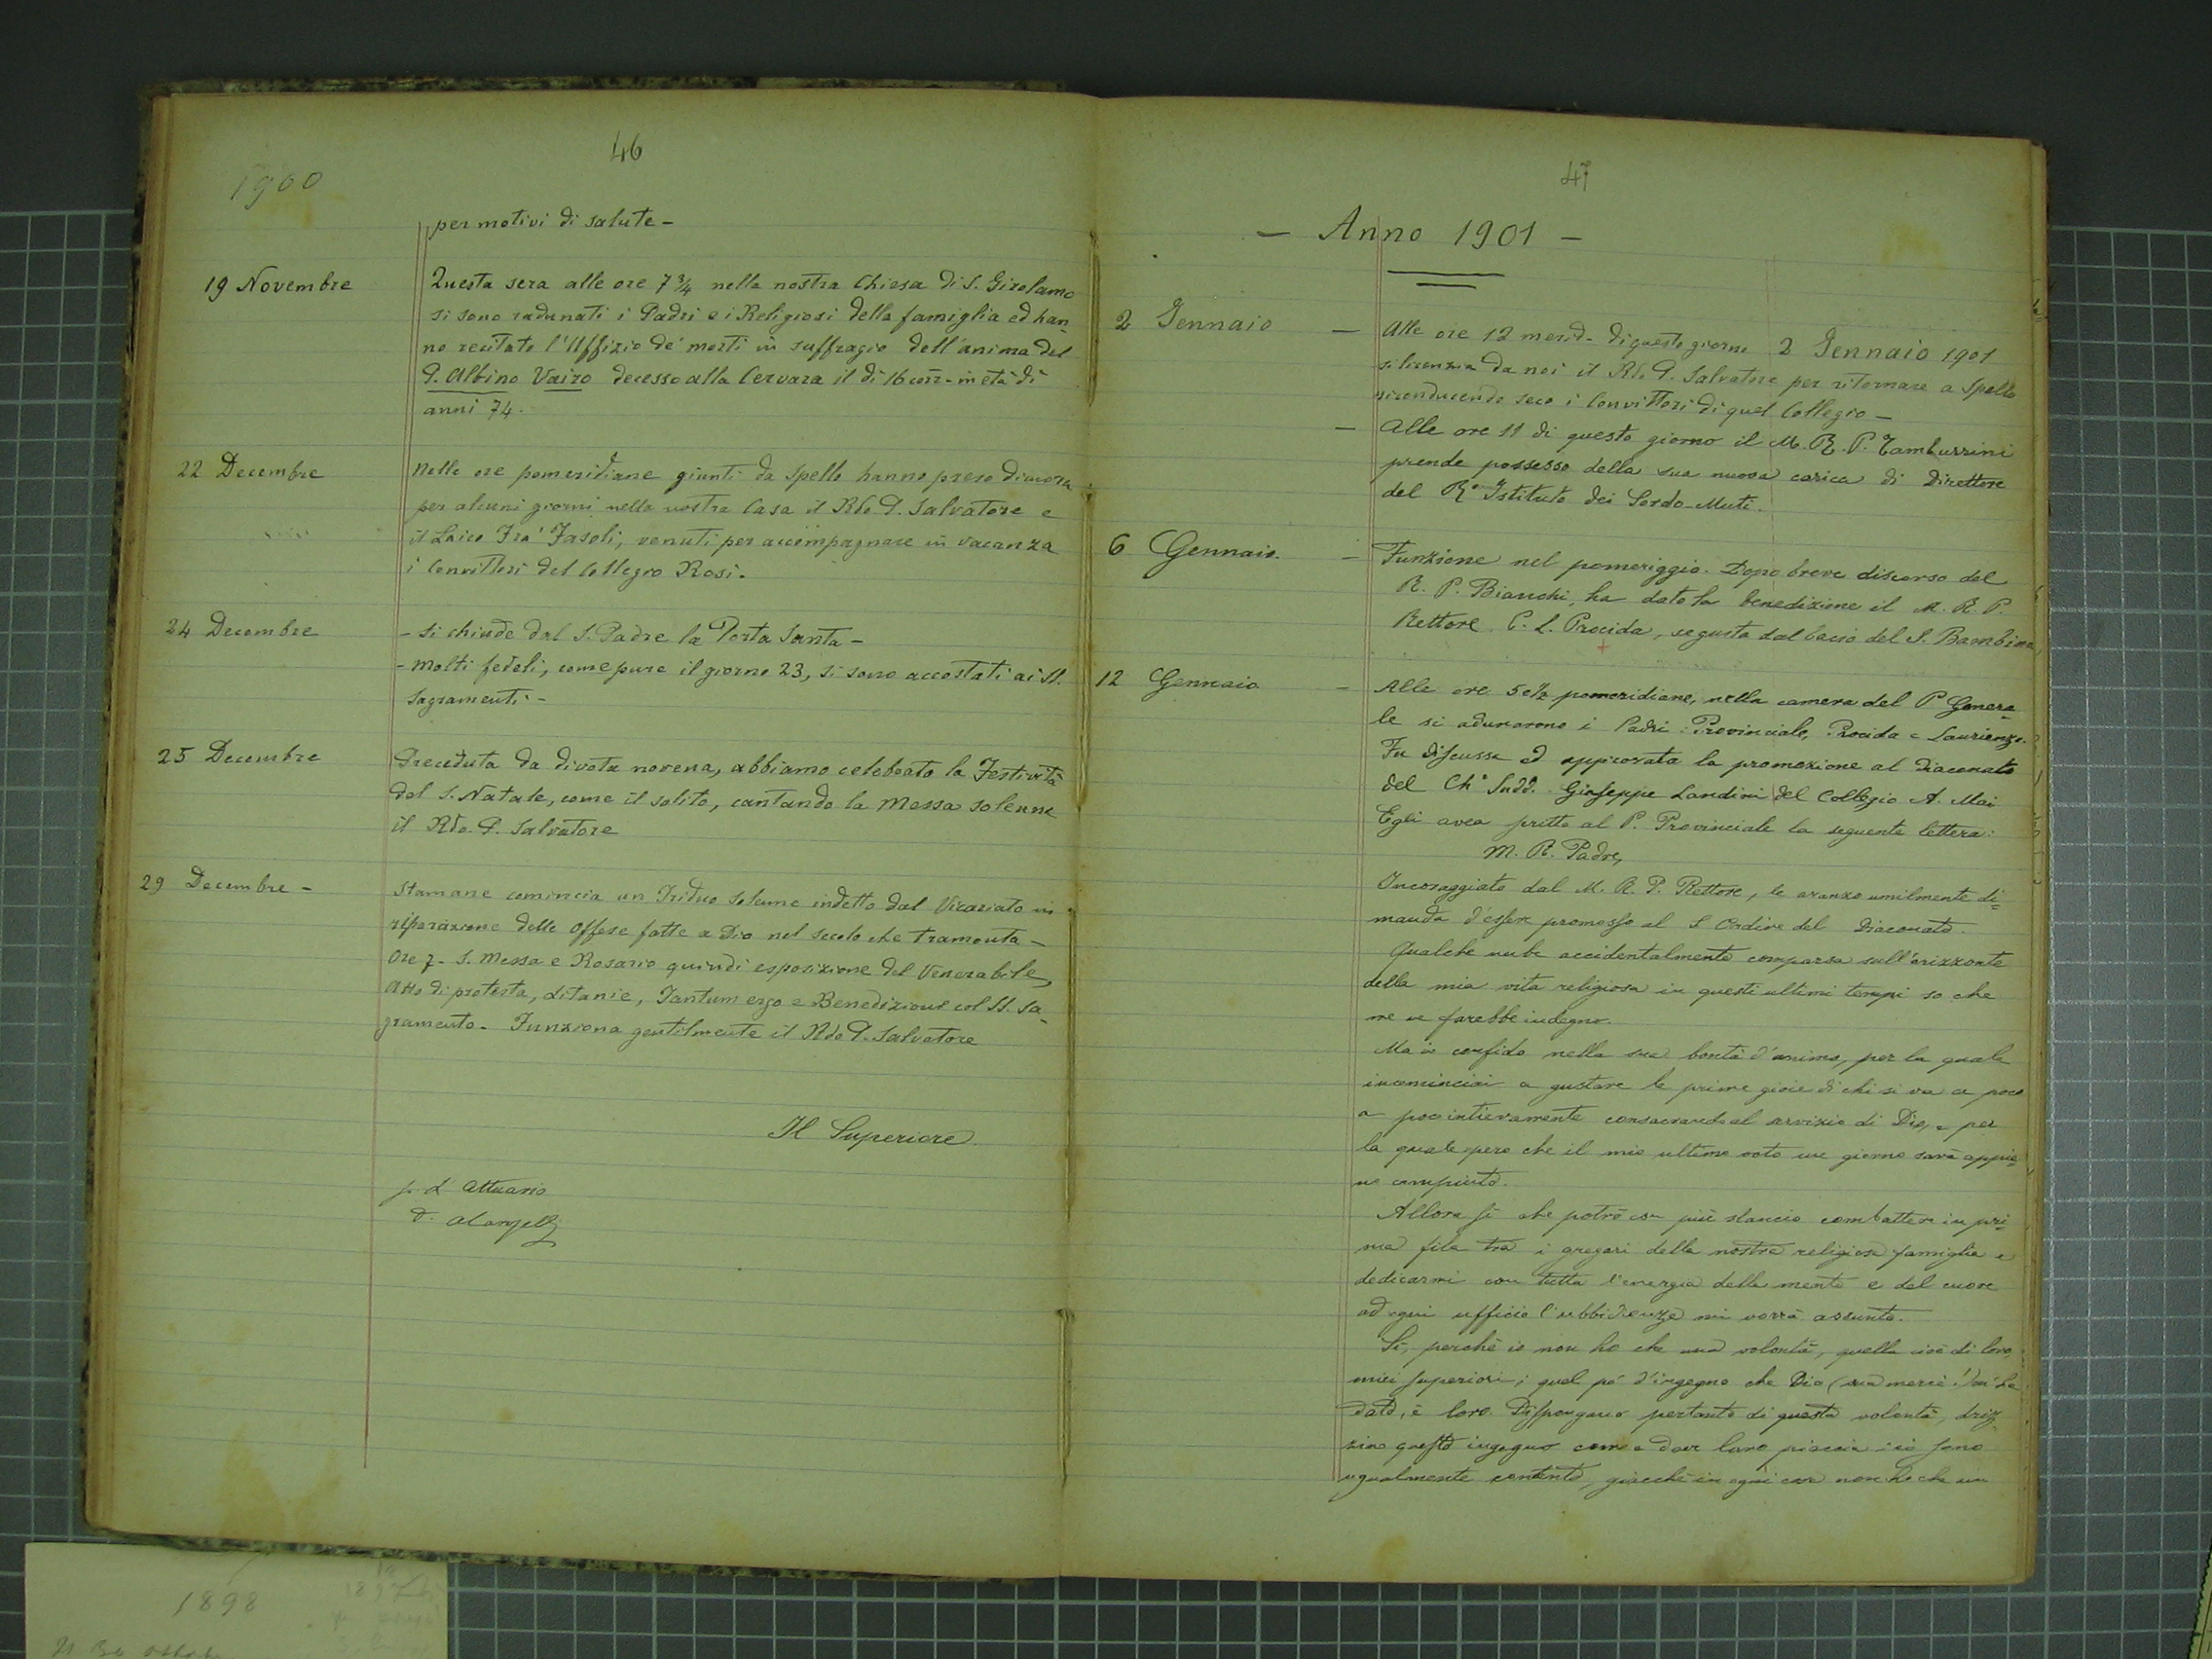 46
1900
per motivi di salute -
19 Novembre
Questa sera alle ore 7 3/4 nella nostra Chiesa di S. Girolamo
si sono radunati i Padri e i Religiosi della famiglia ed han_
no recitato l'Uffizio de' morti in suffragio dell'anima del
P. Albino Vairo decesso alla Cervara il dì 16 corr- in età di
anni 74.
22 Decembre
Nelle ore pomeridiane giunti da Spello hanno preso dimora
per alcuni giorni nella nostra Casa il Rdo P. Salvatore e
il Laico Fra' Fasoli, venuti per accompagnare in vacanza
i Convittori del Collegio Rosi.
24 Decembre
- Si chiude dal S. Padre la Porta Santa -
- Molti fedeli, come pure il giorno 23, si sono accostati ai SS.
Sagramenti -
25 Decembre
Preceduta da divota novena, abbiamo celebrato la Festività
del S. Natale, come il solito, cantando la Messa solenne
il Rdo. P. Salvatore
29 Decembre -
Stamane comincia un Triduo solenne indetto dal Vicariato in
riparazione delle offese fatte a Dio nel secolo che tramonta -
Ore 7 - S. Messa e Rosario quindi esposizione del Venerabile,
Atto di protesta, Litanie, Tantum ergo e Benedizione col SS. Sa_
gramento - Funziona gentilmente il Rdo P. Salvatore
Il Superiore
p. L'Attuario
47
- Anno 1901 -
2 Gennaio
- Alle ore 12 merid- di questo giorno 2 Gennaio 1901
si licenzia da noi il Rdo P. Salvatore per ritornare a Spello
riconducendo seco i Convittori di quel Collegio -
- Alle ore 11 di questo giorno il M. R. P. Tamburrini
prende possesso della sua nuova carica di Direttore
del R. Istituto dei Sordo-Muti.
6 Gennaio.
- Funzione nel pomeriggio. Dopo breve discorso del
R. P. Bianchi, ha dato la benedizione il M. R. P.
Rettore C. L. Procida, seguita dal bacio del S. Bambino
12 Gennaio
- Alle ore 5 e 1/2 pomeridiane, nella camera del P. Genera_
le si adunarono i Padri: Provinciale, Procida e Laurienzo.
Fu discussa ed approvata la promozione al Diaconato
del Ch° Sudd. Giuseppe Landini del Collegio A. Mai
Egli avea scritto al P. Provinciale la seguente lettera:
M. R. Padre,
Incoraggiato dal M. R. P. Rettore, le avanzo umilmente di=
manda d'essere promosso al S. Ordine del Diaconato.
Qualche nube accidentalmente comparsa sull'orizzonte
della mia vita religiosa in questi ultimi tempi so che
me ne farebbe indegno.
Ma io confido nella sua bontà d'animo, per la quale
incominciai a gustare le prime gioie di chi si va a poco
a poco intieramente consacrando al servizio di Dio, e per
la quale spero che il mio ultimo voto un giorno sarà appie=
no compiuto.
Allora sì che potrò con più slancio combattere in pri=
ma fila tra i gregari della nostra religiosa famiglia e
dedicarmi con tutta l'energia della mente e del cuore
ad ogni ufficio l'ubbidienza mi vorrà assunto.
Sì, perchè io non ho che una volontà, quella cioè di loro,
miei superiori; quel pò d'ingegno che Dio (sua mercè!) mi ha
dato, è loro. Dispongano pertanto di questa volontà, driz_
zino questo ingegno come e dove loro piaccia: io sono
ugualmente contento, giacchè in ogni caso non ho che un
1898